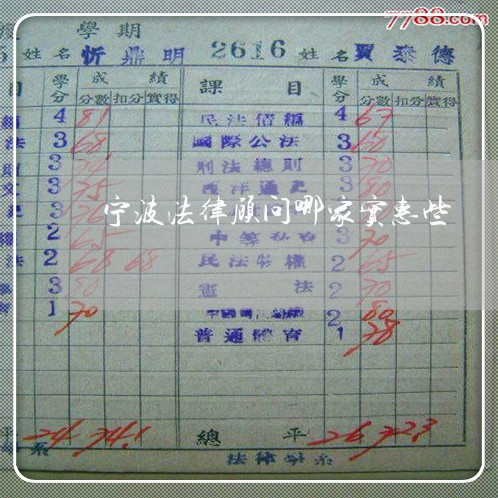 7788.com
學期
5 姓名 忻鼎明 2616 姓名 賈泰德
目 學分 成績 課目 學分 成績
分數 扣分 實得 分數 扣分 實得
4 81 民法債編 4 67
法 3 68 國際公法 3 60
3 刑法總則 3 70
3 75 西洋通史 3 80
宁波法律顾问哪家实惠些
2 65 3 70
法 2 68 68 民法物權 2 65
3 80 憲法 2 70
1 70 2 80
普通體育 1 78
平 24 74.1 總平 26 72.3
系 法律學系